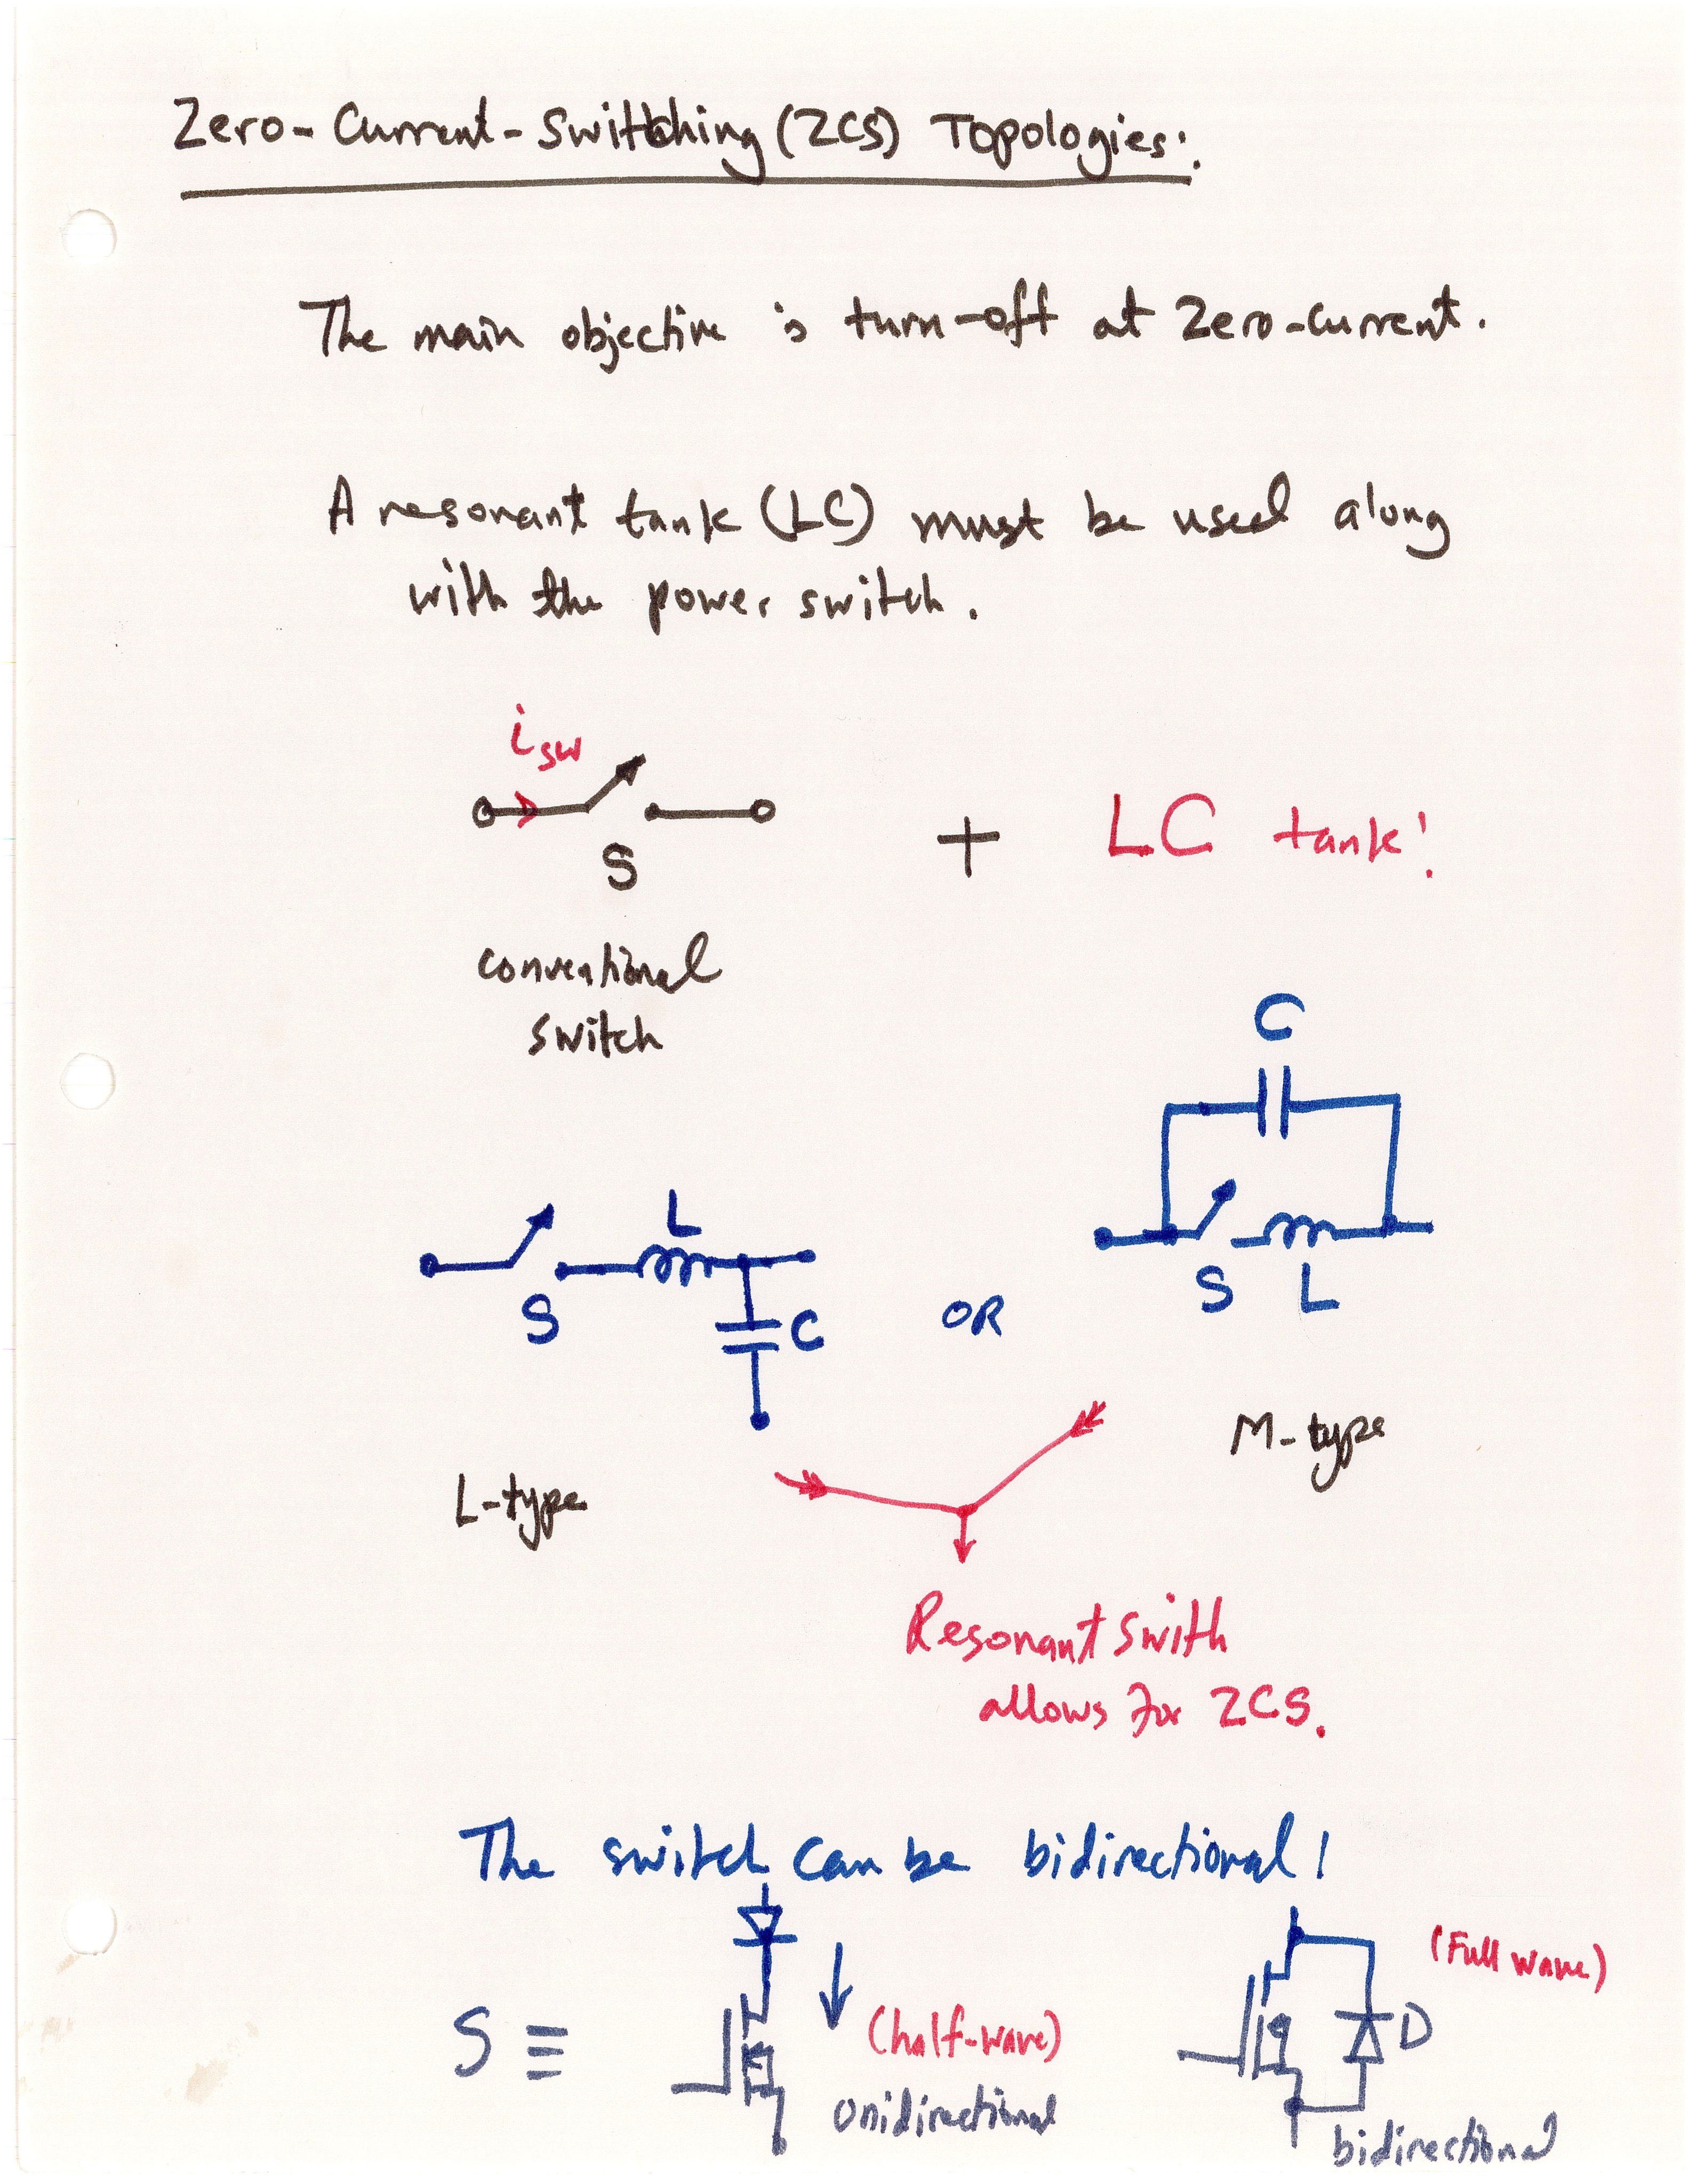 Zero-Current-Switching (ZCS) Topologies:
The main objective is turn-off at Zero-current.
A resonant tank (LC) must be used along
with the power switch.
isw
S
+ LC tank!
conventional
switch
C
L
S
C
OR
S L
M-type
L-type
Resonant swith
allows for ZCS.
The switch can be bidirectional!
(Full wave)
S ≡
(half-wave)
D
Unidirectional
bidirectional